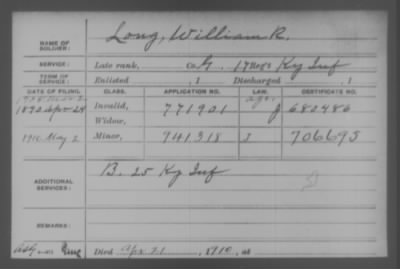 NAME OF SOLDIER: Long, William R.
SERVICE: Late rank, Co. G, 17 Reg't Ky Inf
TERM OF SERVICE: Enlisted , 1 Discharged , 1
DATE OF FILING. CLASS. APPLICATION NO. LAW. CERTIFICATE NO.
1890 Apr 24 Invalid, 771901 g 680486
Widow,
1910 May 2 Minor, 941318 J 706695
ADDITIONAL SERVICES: B. 25 Ky Inf
REMARKS:
Died Apr 21, 1910, at